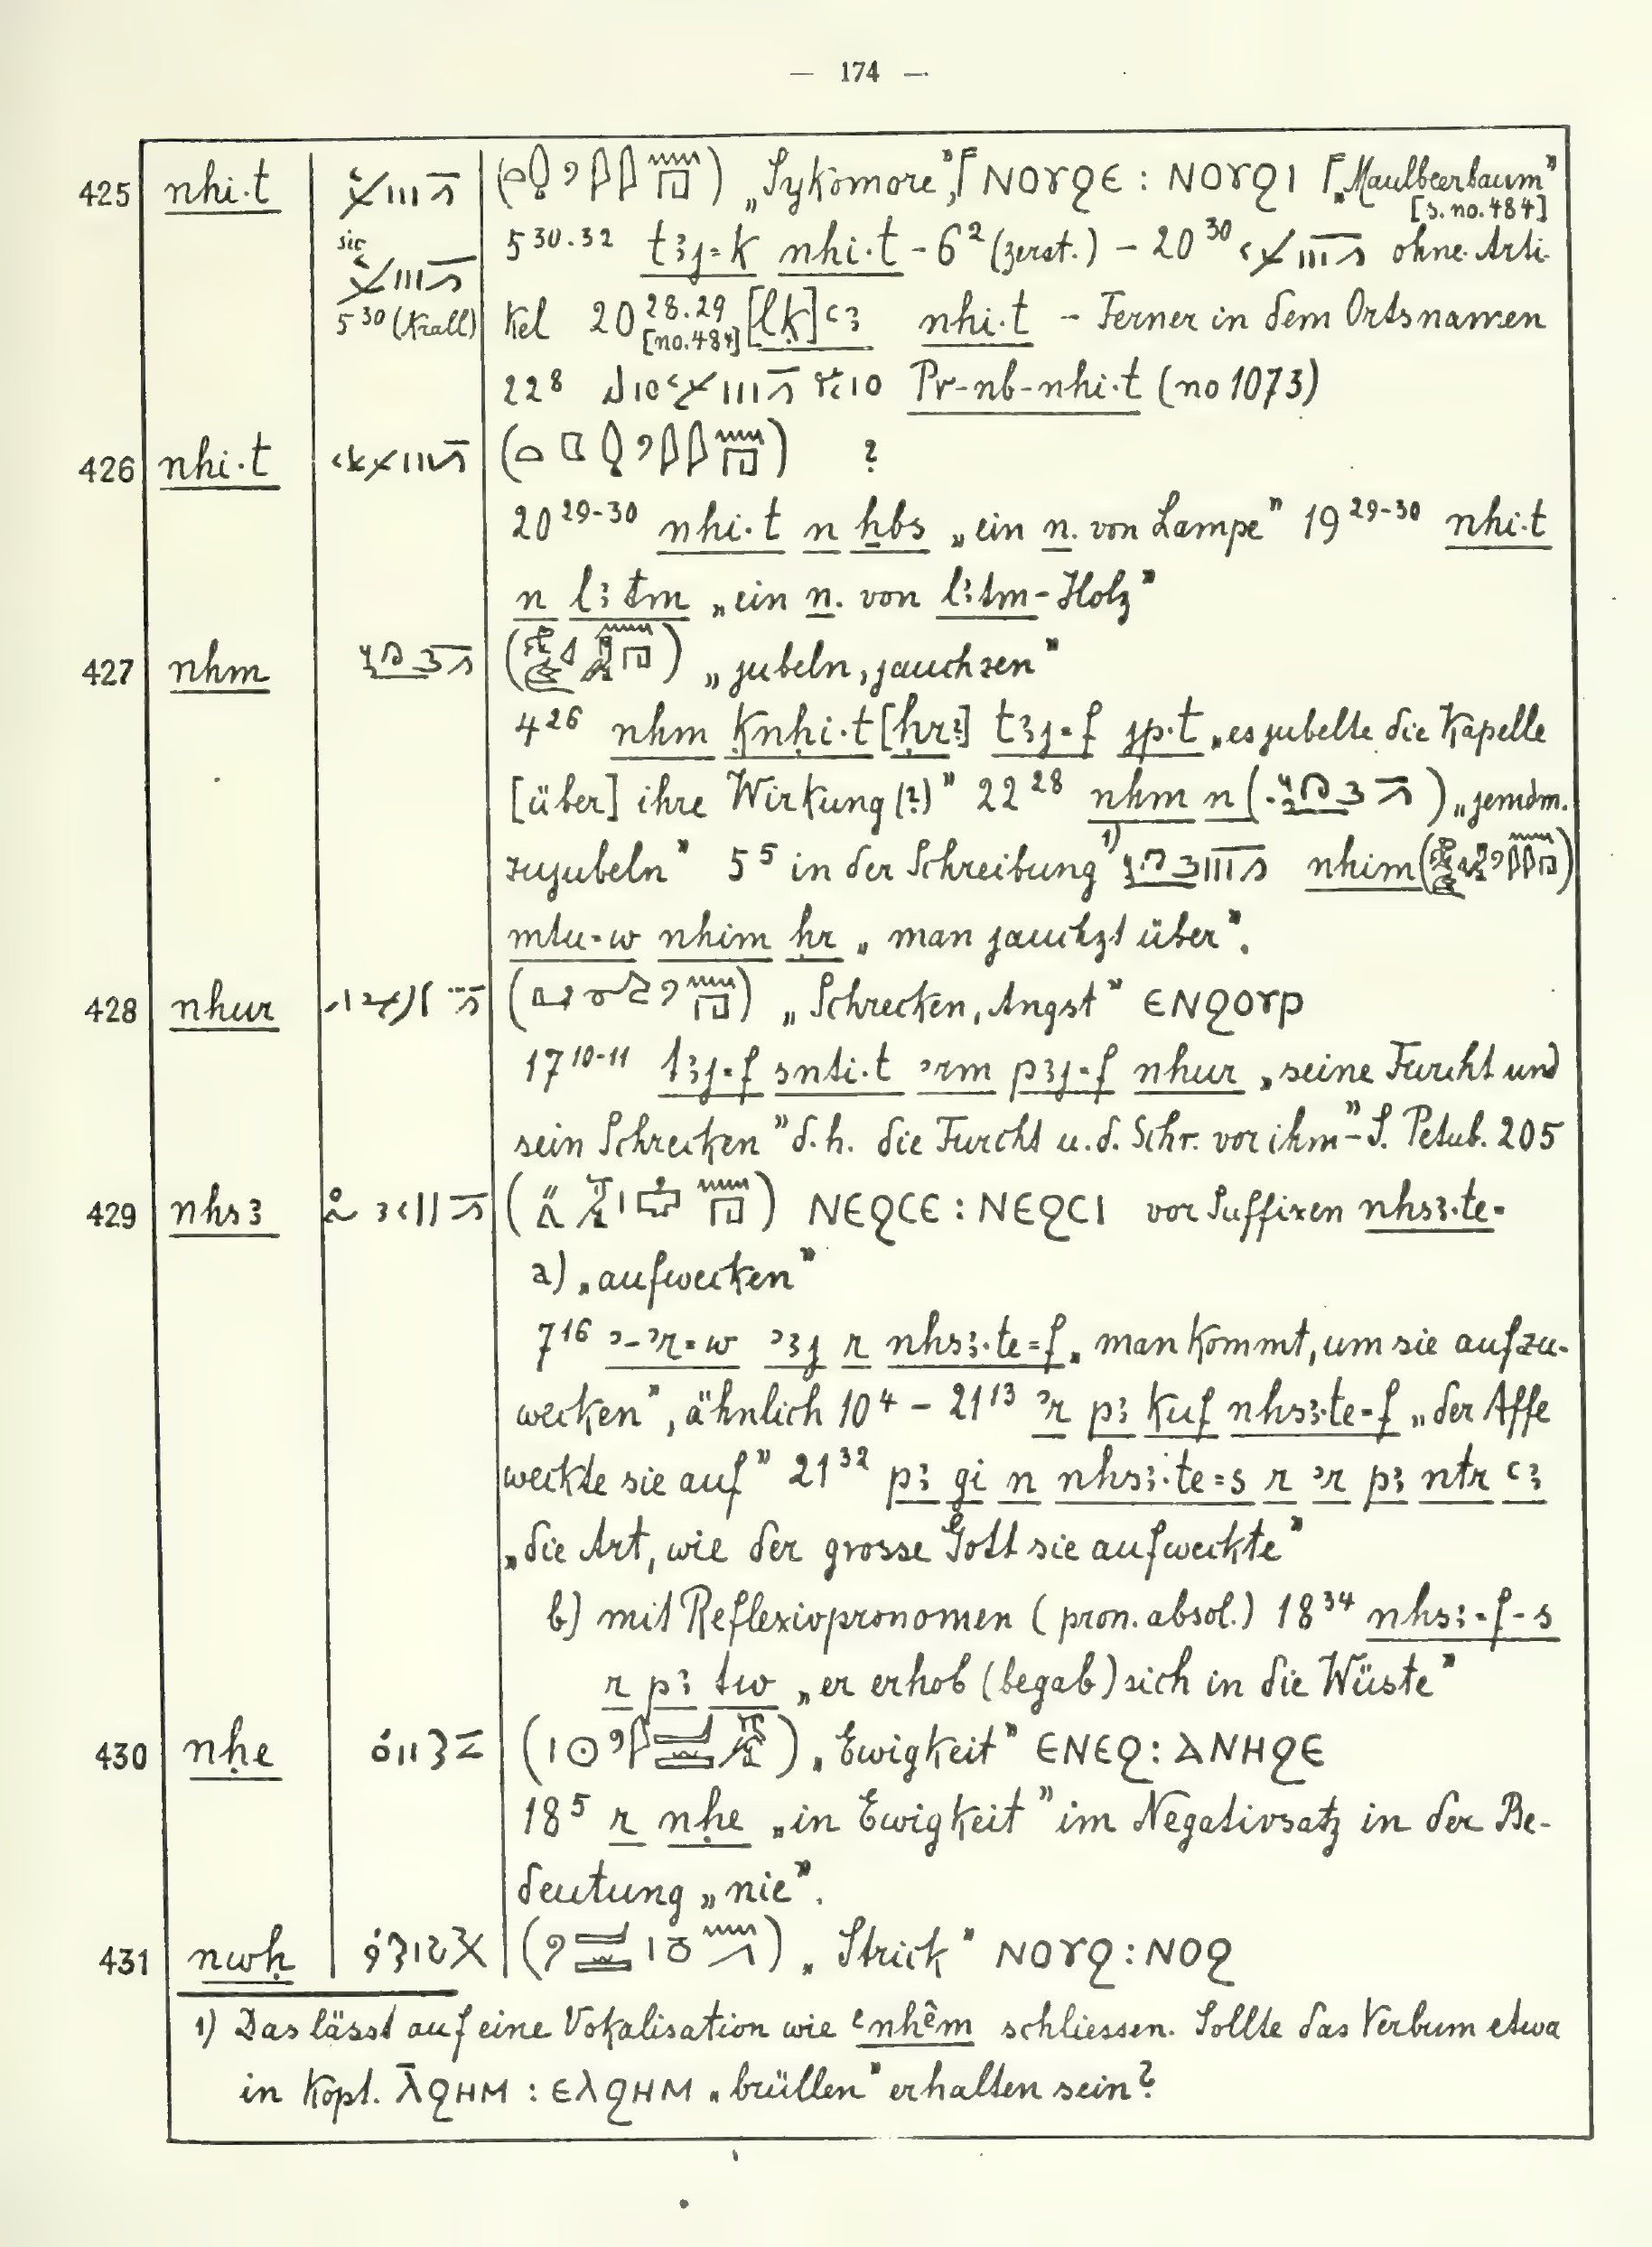 — 174 —
425 nhi·t „Sykomore", ⲚⲞⲨϨⲈ : ⲚⲞⲨϨⲒ „Maulbeerbaum"
[s. no. 484]
sic 5 30.32 tꜣj=k nhi·t – 6² (zerst.) – 20³⁰ ohne Arti-
5³⁰ (Krall) kel 20 28.29 [no. 484] [lk]ꜥꜣ nhi·t – Ferner in dem Ortsnamen
22⁸ Pr-nb-nhi·t (no 1073)
426 nhi·t ?
20²⁹⁻³⁰ nhi·t n ḫbs „ein n. von Lampe" 19²⁹⁻³⁰ nhi·t
n lꜣtm „ein n. von lꜣtm-Holz"
427 nhm „jubeln, jauchzen"
4²⁶ nhm ḳnḥi·t [ḥrꜣ] tꜣj=f jp·t „es jubelte die Kapelle
[über] ihre Wirkung (?)" 22²⁸ nhm n ( ) „jemdm.
zujubeln" 5⁵ in der Schreibung ¹⁾ nhim ( )
mtu=w nhim ḥr „man jauchzt über".
428 nhur „Schrecken, Angst" ⲈⲚϨⲞⲨⲢ
17¹⁰⁻¹¹ tꜣj=f snti·t ꜣrm pꜣj=f nhur „seine Furcht und
sein Schrecken" d.h. die Furcht u.d. Schr. vor ihm" – S. Petub. 205
429 nhsꜣ ⲚⲈϨⲤⲈ : ⲚⲈϨⲤⲒ vor Suffixen nhsꜣ·te=
a) „aufwecken"
7¹⁶ ꜣ-ꜣr=w ꜣꜣj r nhsꜣ·te=f „man kommt, um sie aufzu-
wecken", ähnlich 10⁴ – 21¹³ ꜣr pꜣ kuf nhsꜣ·te=f „der Affe
weckte sie auf" 21³² pꜣ gi n nhsꜣ·te=s r ꜣr pꜣ ntr ꜥꜣ
„die Art, wie der grosse Gott sie aufweckte"
b) mit Reflexivpronomen (pron. absol.) 18³⁴ nhsꜣ=f-s
r pꜣ tw „er erhob (begab) sich in die Wüste"
430 nḥe „Ewigkeit" ⲈⲚⲈϨ : ⲀⲚⲎϨⲈ
18⁵ r nḥe „in Ewigkeit" im Negativsatz in der Be-
deutung „nie".
431 nwḥ „Strick" ⲚⲞⲨϨ : ⲚⲞϨ
1) Das lässt auf eine Vokalisation wie ᵉnhêm schliessen. Sollte das Verbum etwa
in Kopt. ⲗ̄ϨⲎⲘ : ⲈⲖϨⲎⲘ „brüllen" erhalten sein?